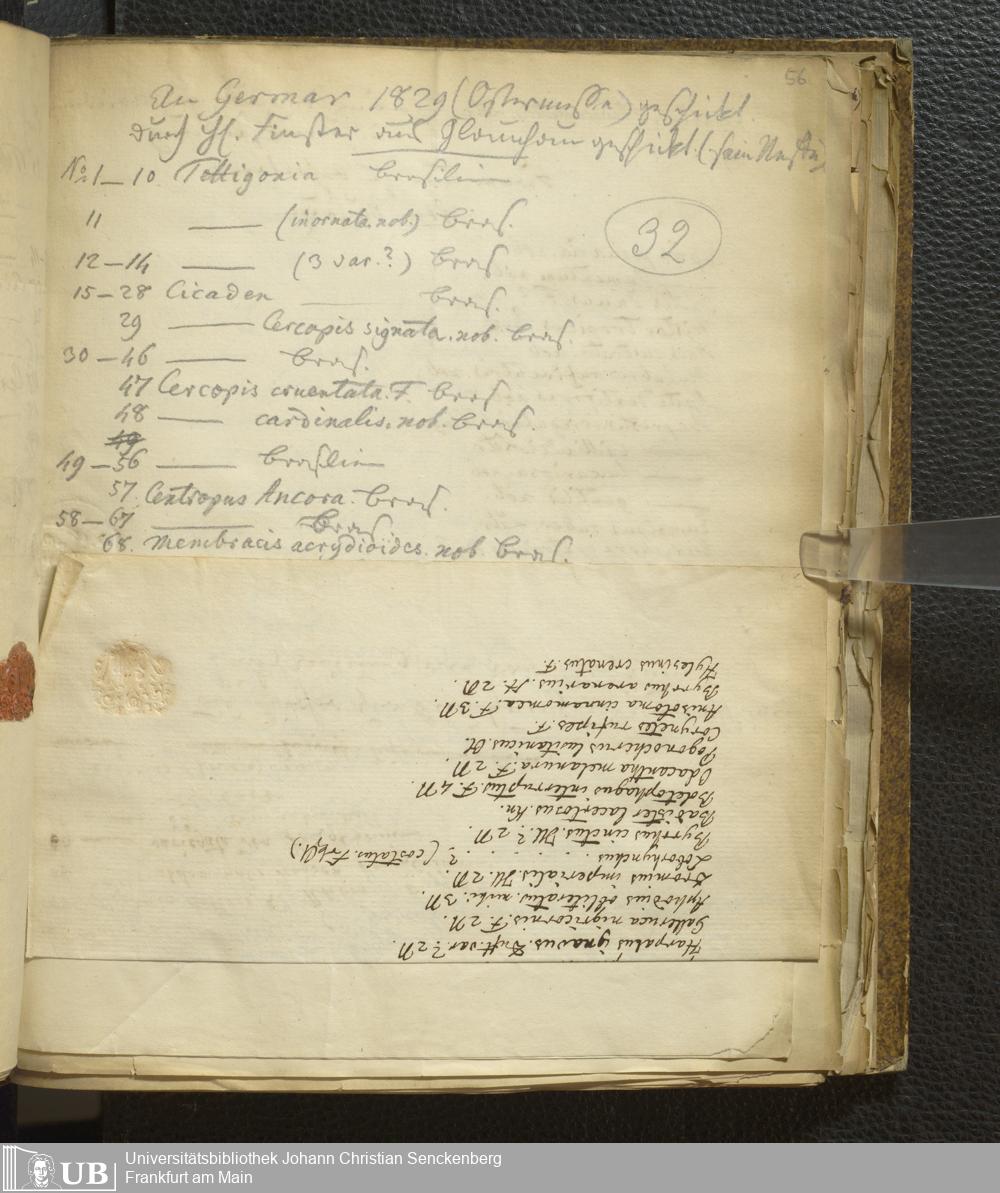 56
An Germar 1829 (Ostermesse) geschickt
durch H. Finster aus Glauchau geschickt. (
No. 1–10 Tettigonia brasilien
11 —— (inornata. nob.) bras.
32
12–14 —— (3 var.?) bras
15–28 Cicaden —— bras.
29 —— Cercopis signata. nob. bras.
30–46 —— bras.
47 Cercopis cruentata. F. bras
48 —— cardinalis. nob. bras.
49
49–56 —— brasilien
57. Centropus Ancora. bras.
58–67 —— bras.
68. Membracis acrydioides. nob. bras.
Harpalus ignavus. Duft. var? 2 N.
Galleruca nigricornis. F. 2 N.
Aphodius obliteratus. mihi. 3 N.
Dromius imperialis. Ml. 2 N.
Loborhynchus . . . . . ? (costatus. Frbl.)
Byrrhus cinctus. Ml? 2 N.
Badister lacertosus. Kn.
Boletophagus interruptus. F. 4 N.
Odacantha melanura. F. 2 N.
Pogonocherus lusitanicus. Ol.
Corynetes rufipes. F.
Anisotoma cinnamomea. F. 3 N.
Byrrhus arenarius. St. 2 N.
Hylesinus crenatus. F.
UB
Universitätsbibliothek Johann Christian Senckenberg
Frankfurt am Main